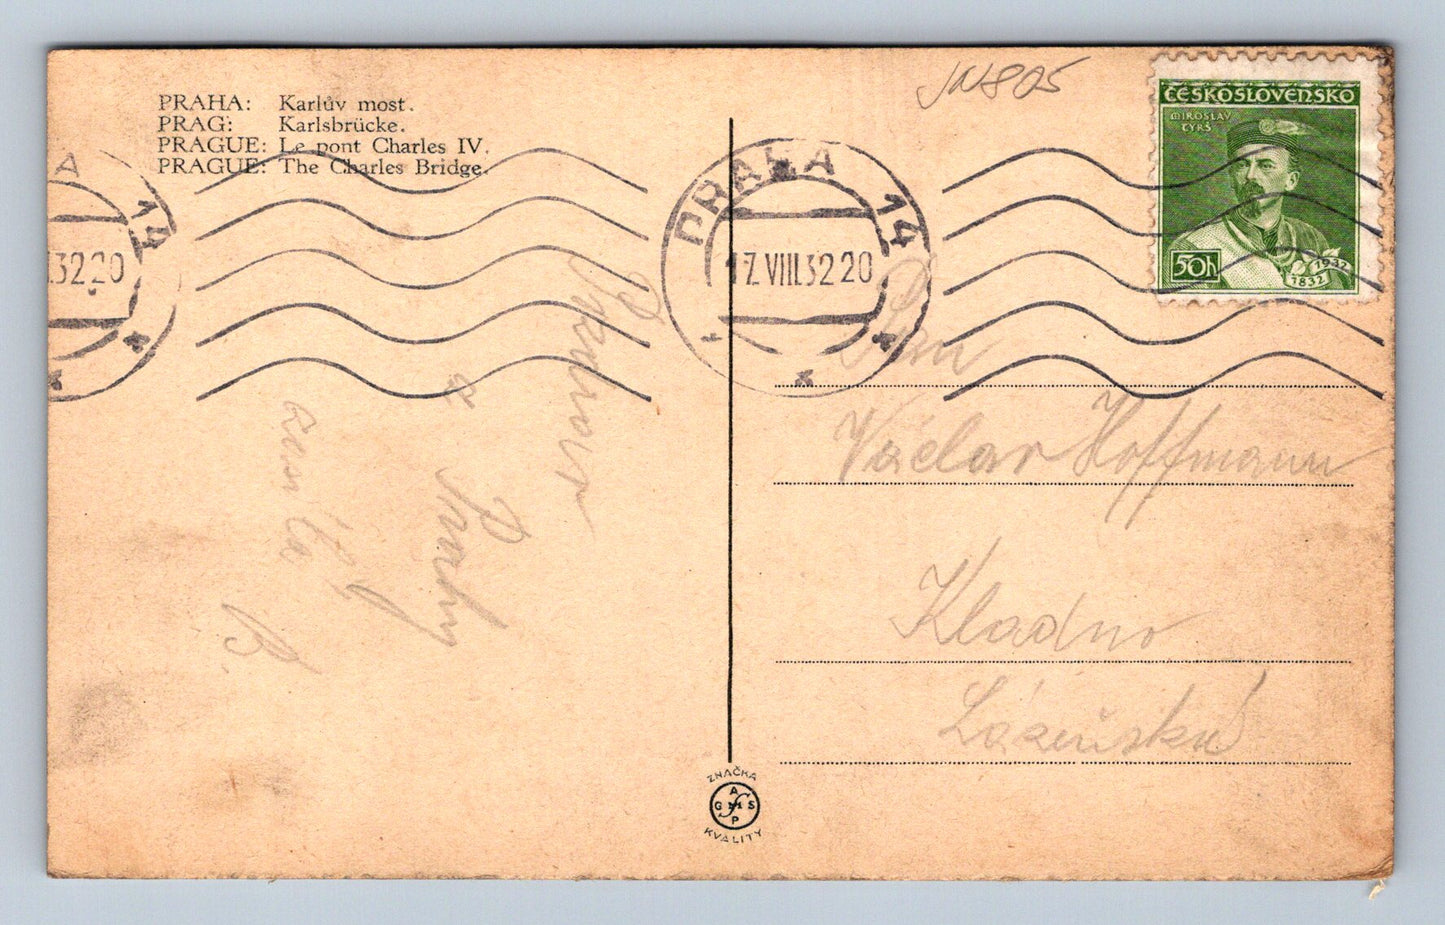 PRAHA: Karlův most.
PRAG: Karlsbrücke.
PRAGUE: Le pont Charles IV.
PRAGUE: The Charles Bridge.
ČESKOSLOVENSKO
MIROSLAV
TYRŠ
50h
1832 1932
A 14
.32 20
PRAHA 14
17.VIII.32 20
Pan
Václav Hoffmann
Kladno
Lázeňská
z
Prahy
ZNAČKA
GMS
A
P
KVALITY